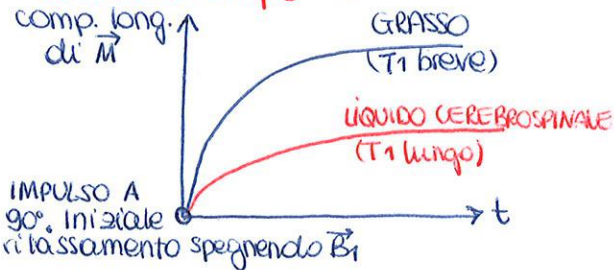 comp. long.
di M
GRASSO
(T1 breve)
LIQUIDO CEREBROSPINALE
(T1 lungo)
IMPULSO A
90°. Iniziale
rilassamento spegnendo B1
t